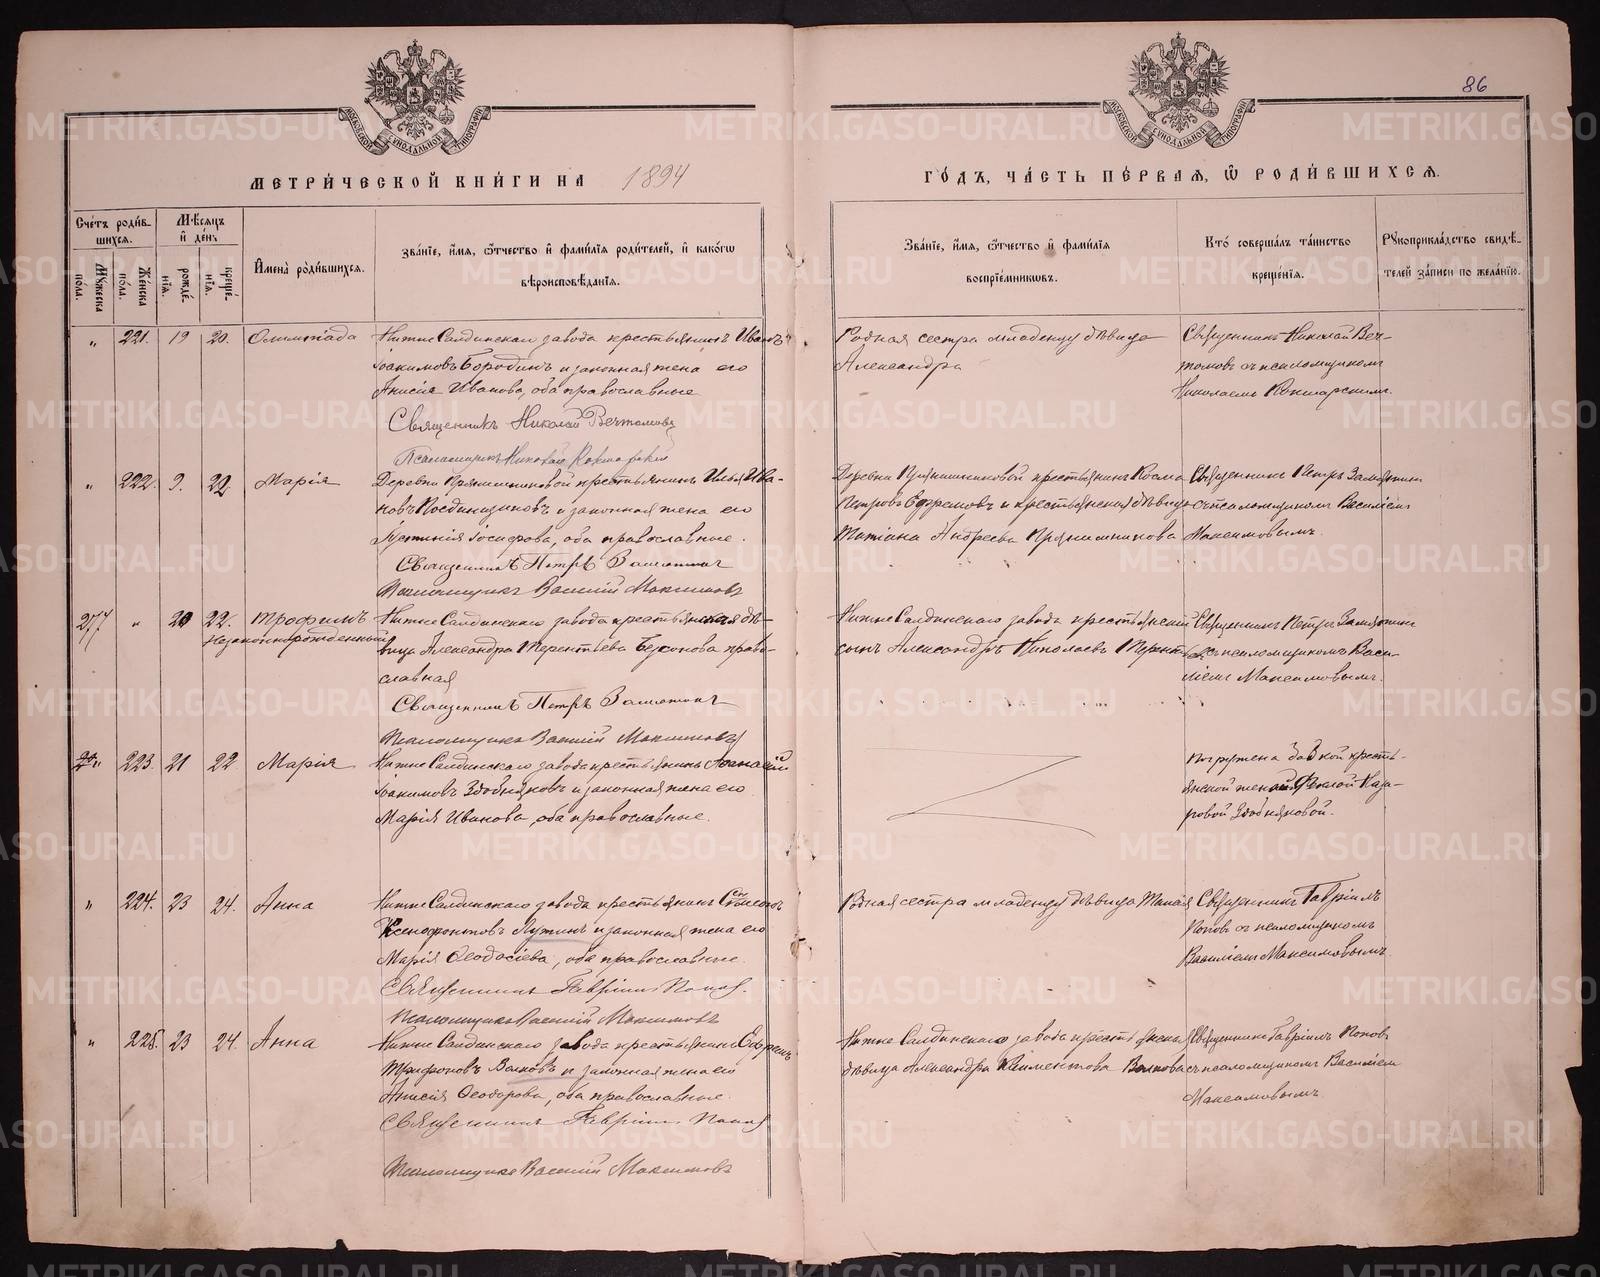 86
МОСКОВСКОЙ СѴНОДАЛЬНОЙ ТИПОГРАФІИ
МОСКОВСКОЙ СѴНОДАЛЬНОЙ ТИПОГРАФІИ
МЕТРИ́ЧЕСКОЙ КНИ́ГИ НА 1894
ГО́ДЪ, ЧА́СТЬ ПЕ́РВАЯ, Ѿ РОДИ́ВШИХСЯ.
Сче́тъ роди́вшихся.
Мꙋжеска по́ла.
Же́нска по́ла.
Мѣ́сяцъ и҆ де́нь
рожде́нїя.
креще́нїя.
И҆мена̀ роди́вшихся.
Зва́нїе, и҆́мя, ѻ҆́тчество и҆ фами́лїя роди́телей, и҆ како́гѡ вѣроисповѣ́данїя.
Зва́нїе, и҆́мя, ѻ҆́тчество и҆ фами́лїя воспрїе́мниковъ.
Кто̀ соверша́лъ та́инство креще́нїя.
Рꙋкоприкла́дство свидѣ́телей за́писи по жела́нїю.
" 221. 19 20. Олимпіада
Нижне Салдинскаго завода крестьянинъ Иванъ
Іоакимовъ Бородинъ и законная жена его
Анисія Иванова, оба православные
Священникъ Николай Вечтомовъ
Псаломщикъ Николай
Родная сестра младенцу дѣвица
Александра
Священникъ Николай Веч-
томовъ съ псаломщикомъ
Николаемъ
" 222. 9. 22. Марія
Деревни Прянишниковой крестьянинъ Илья Ива-
новъ и законная жена его
Іустинія Іосифова, оба православные.
Священникъ Петръ Замятинъ
Псаломщикъ Василій Максимовъ
Деревни Прянишниковой крестьянинъ Косма
Петровъ Ефремовъ и крестьянская дѣвица
Татіана Андреева Прянишникова
Священникъ Петръ Замятинъ
съ псаломщикомъ Василіемъ
Максимовымъ.
277 " 20 22. Трофимъ
незаконнорожденный
Нижне Салдинскаго завода крестьянская дѣ-
вица Александра Терентьева право-
славная
Священникъ Петръ Замятинъ
Псаломщикъ Василій Максимовъ
Нижне Салдинскаго завода крестьянскій
сынъ Александръ Николаевъ
Священникъ Петръ Замятинъ
съ псаломщикомъ Васи-
ліемъ Максимовымъ.
223. 21 22 Марія
Нижне Салдинскаго завода крестьянинъ Афанасій
Іоакимовъ Здобняковъ и законная жена его
Марія Иванова, оба православные.
Погружена бабкой кресть-
янской женой Феклой Наза-
ровой Здобняковой.
" 224. 23 24. Анна
Нижне Салдинскаго завода крестьянинъ
Ксенофонтовъ и законная жена его
Марія Ѳеодосіева, оба православные.
Священникъ Гавріилъ Поповъ.
Псаломщикъ Василій Максимовъ
Родная сестра младенцу дѣвица
Священникъ Гавріилъ
Поповъ съ псаломщикомъ
Василіемъ Максимовымъ
" 225. 23 24. Анна
Нижне Салдинскаго завода крестьянинъ Ефремъ
Трифоновъ Волковъ и законная жена его
Анисія Ѳеодорова, оба православные.
Священникъ Гавріилъ Поповъ
Псаломщикъ Василій Максимовъ
Нижне Салдинскаго завода крестьянская
дѣвица Александра Климентова Волкова
Священникъ Гавріилъ Поповъ
съ псаломщикомъ Василіемъ
Максимовымъ
METRIKI.GASO-URAL.RU